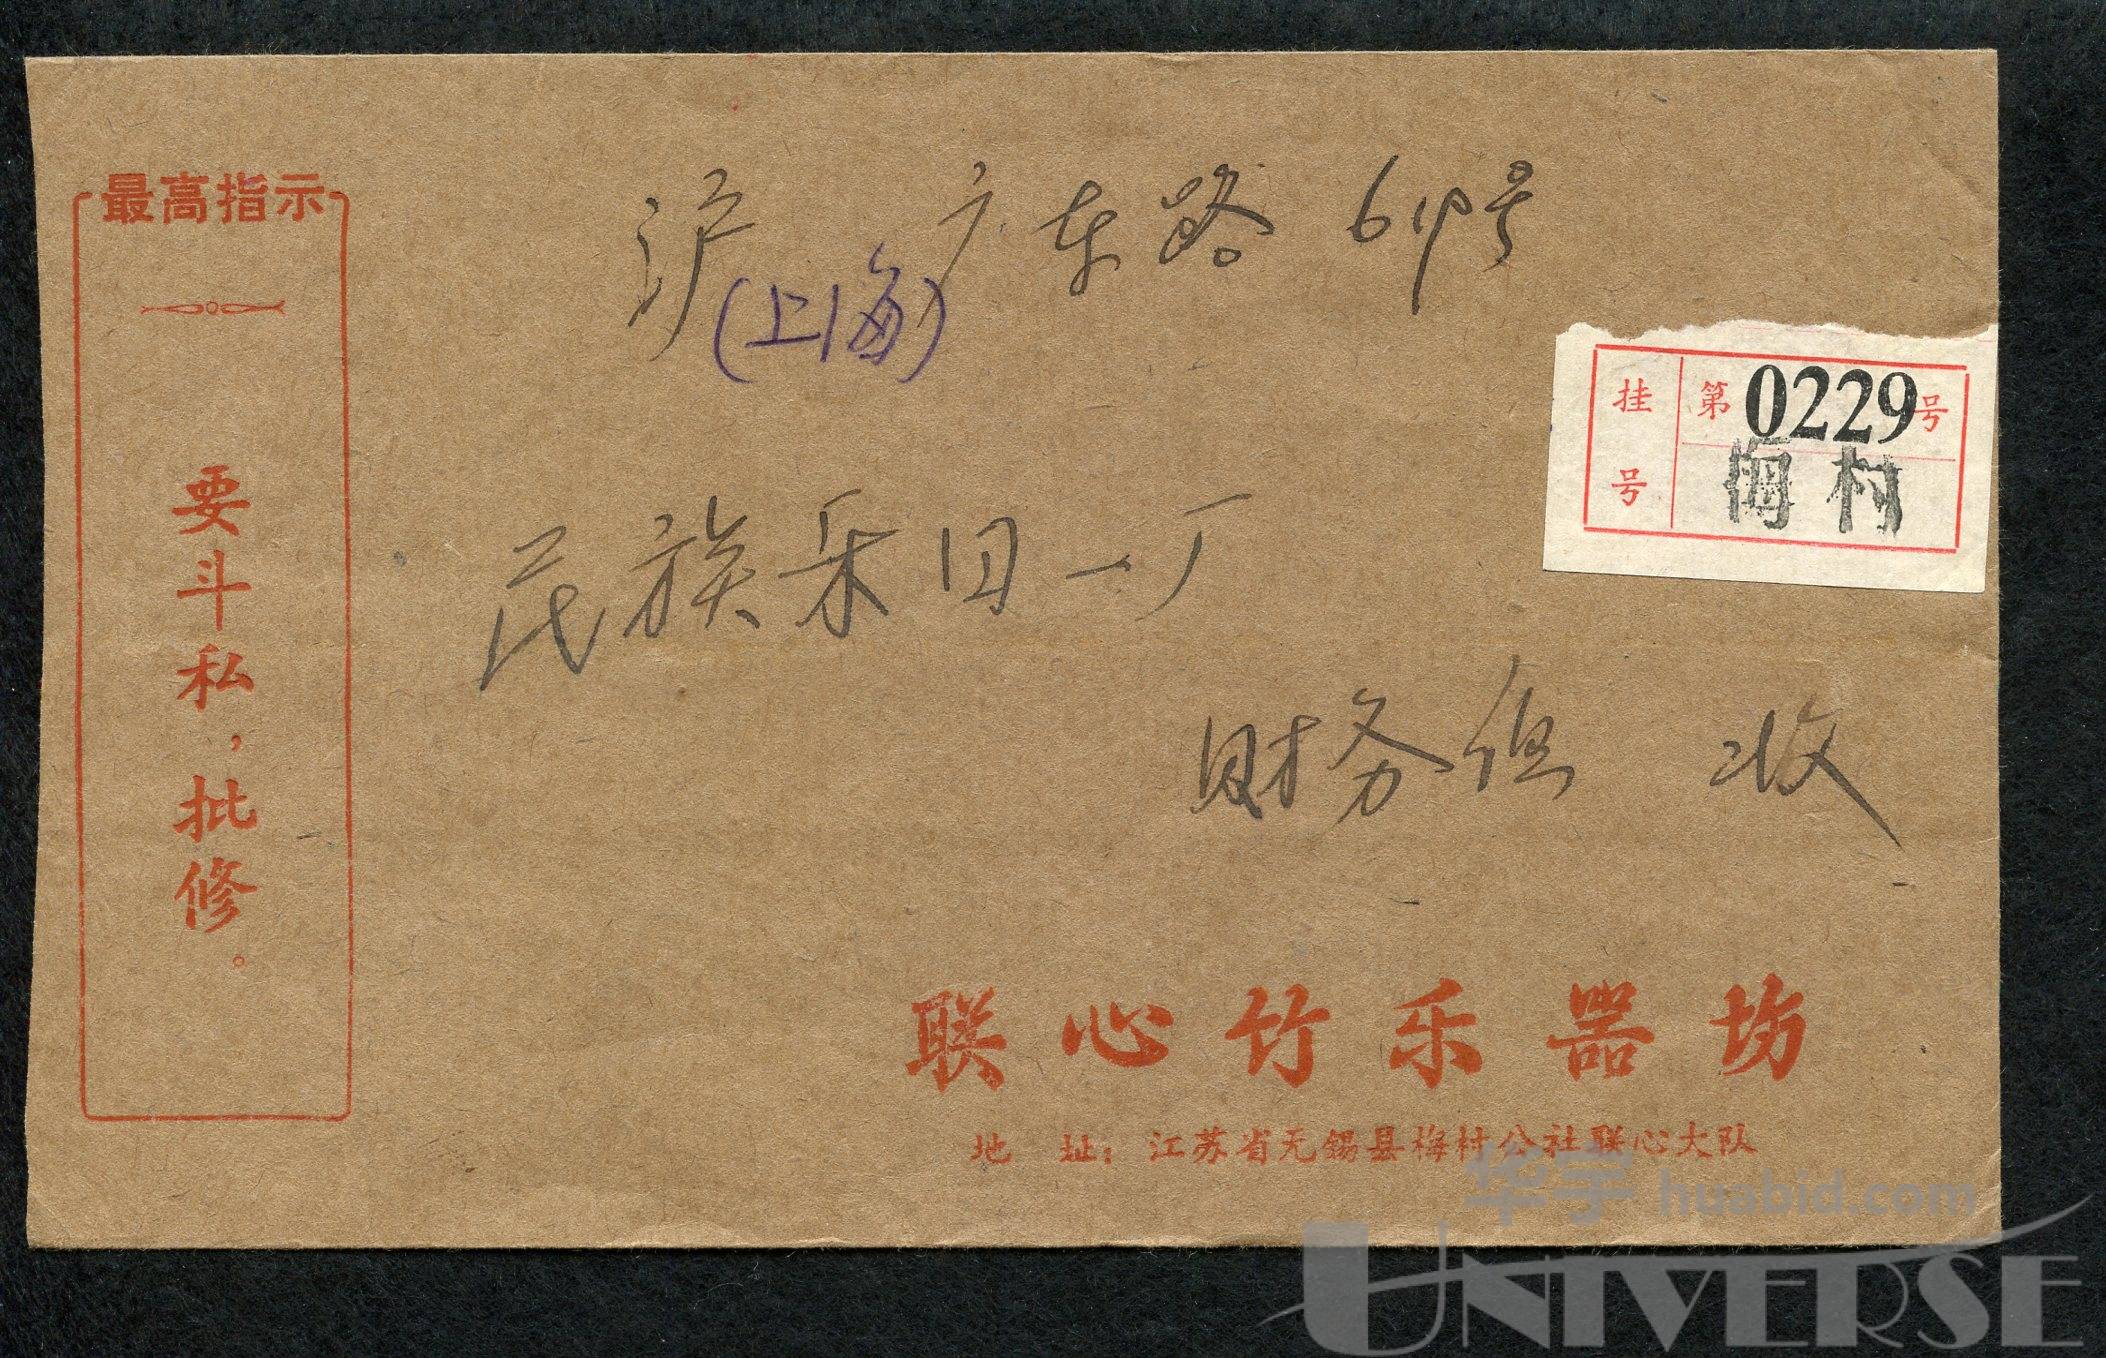 最高指示
要斗私，批修。
沪 广东路 619号
(上海)
挂号
第0229号
梅村
民族乐 一厂
财务组 收
联心竹乐器坊
地 址：江苏省无锡县梅村公社联心大队
华宇 huabid.com
UNIVERSE